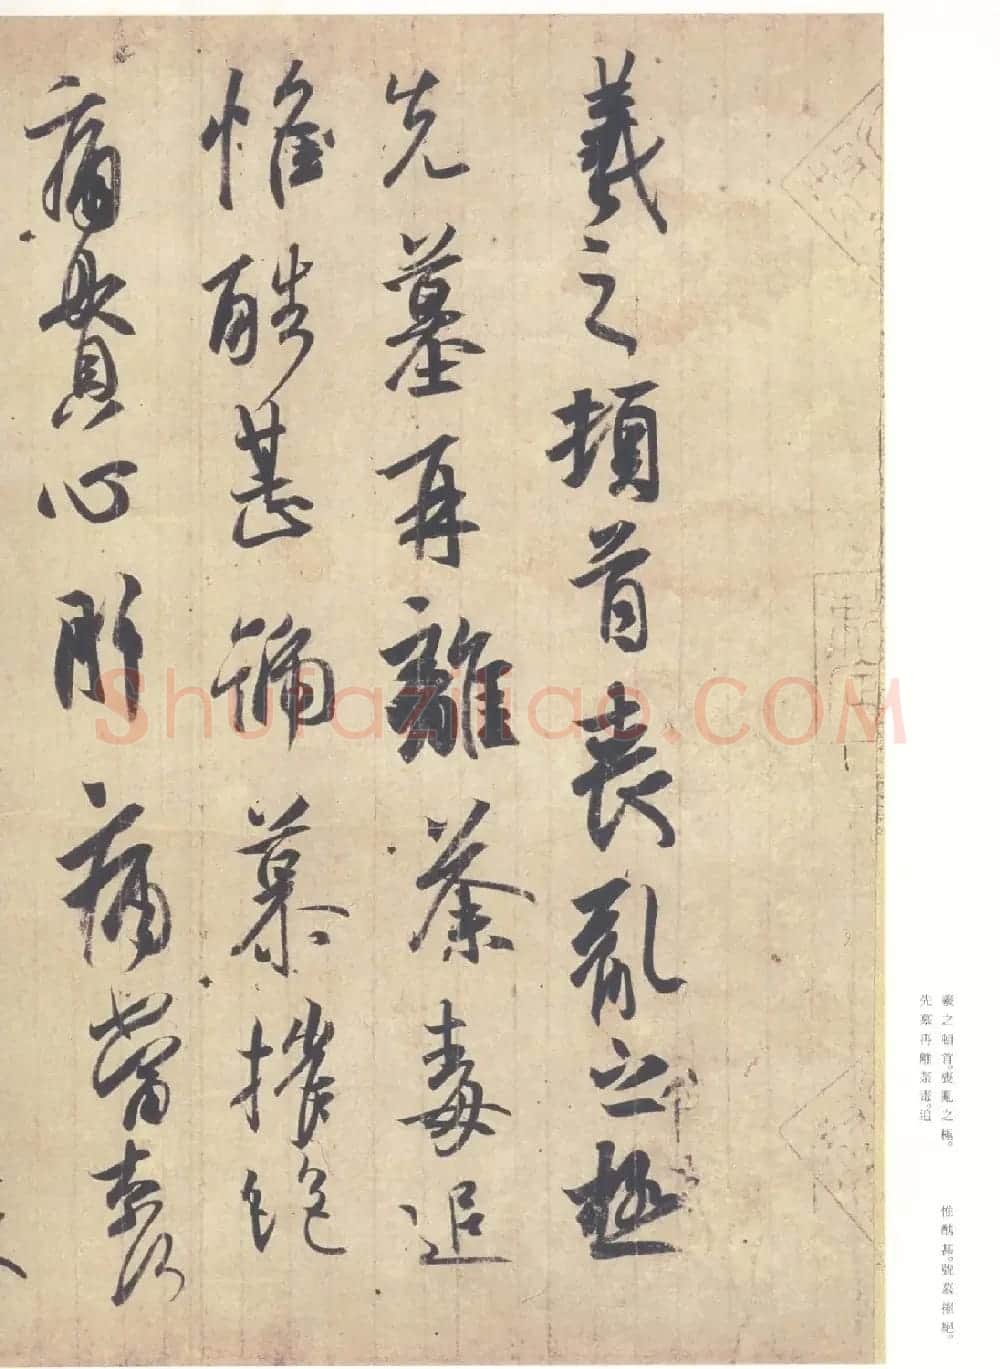 羲之頓首。喪亂之極。
先墓再離荼毒。追
惟酷甚。號慕摧絕。
羲之頓首喪亂之極
先墓再離荼毒追
惟酷甚號慕摧絕
痛貫心肝痛當奈何
Shufaziliao.COM